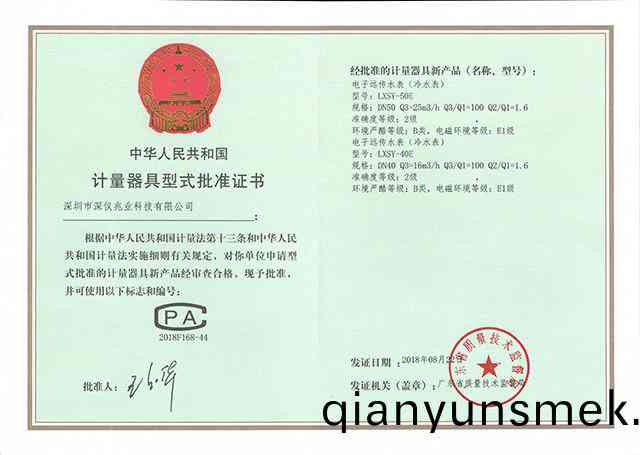 中华人民共和国
计量器具型式批准证书
深圳市深仪兆业科技有限公司
：
根据中华人民共和国计量法第十三条和中华人民
共和国计量法实施细则有关规定，对你单位申请型
式批准的计量器具新产品经审查合格，现予批准，
并可使用以下标志和编号：
CPA
2018F168-44
批准人：
经批准的计量器具新产品（名称、型号）：
电子远传水表（冷水表）
型号：LXSY-50E
规格：DN50 Q3=25m3/h Q3/Q1=100 Q2/Q1=1.6
准确度等级：2级
环境严酷等级：B类，电磁环境等级：E1级
电子远传水表（冷水表）
型号：LXSY-40E
规格：DN40 Q3=16m3/h Q3/Q1=100 Q2/Q1=1.6
准确度等级：2级
环境严酷等级：B类，电磁环境等级：E1级
发证日期：2018年08月22日
发证机关（盖章）：广东省质量技术监督局
东省质量技术监督
qianyunsmek.